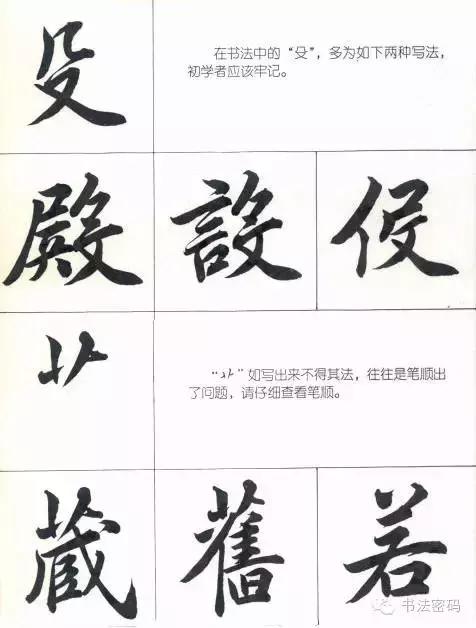 殳
在书法中的“殳”，多为如下两种写法，
初学者应该牢记。
殿 設 役
艹
“艹”如写出来不得其法，往往是笔顺出
了问题，请仔细查看笔顺。
蔵 舊 若
书法密码